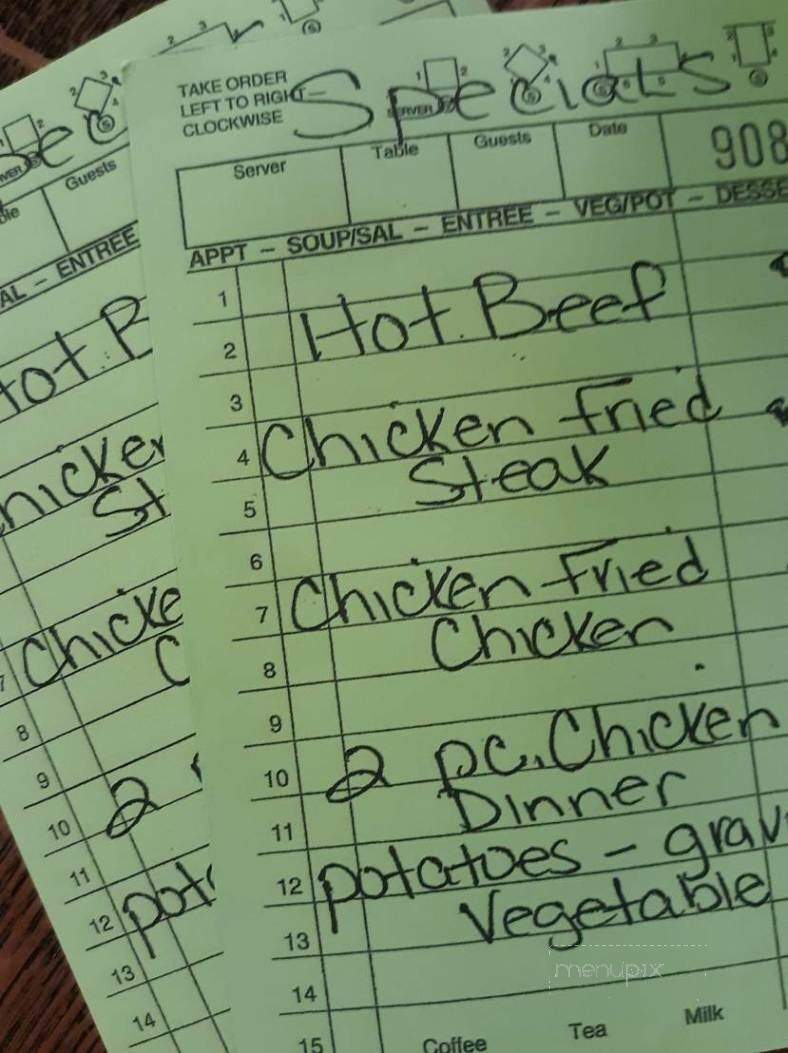 TAKE ORDER
LEFT TO RIGHT —
CLOCKWISE
Specials
Server Table Guests Date 908
APPT – SOUP/SAL – ENTREE – VEG/POT – DESSE
1
Hot Beef
2
3
Chicken Fried
4
Steak
5
6
Chicken Fried
7
Chicken
8
9
2 pc. Chicken
10
Dinner
11
potatoes – grav
12
Vegetable
13
14
15
Coffee Tea Milk
menupix
Guests
AL – ENTREE
ot. B
hicke
St
Chicke
C
7
8
9
2
10
11
pot
12
13
14